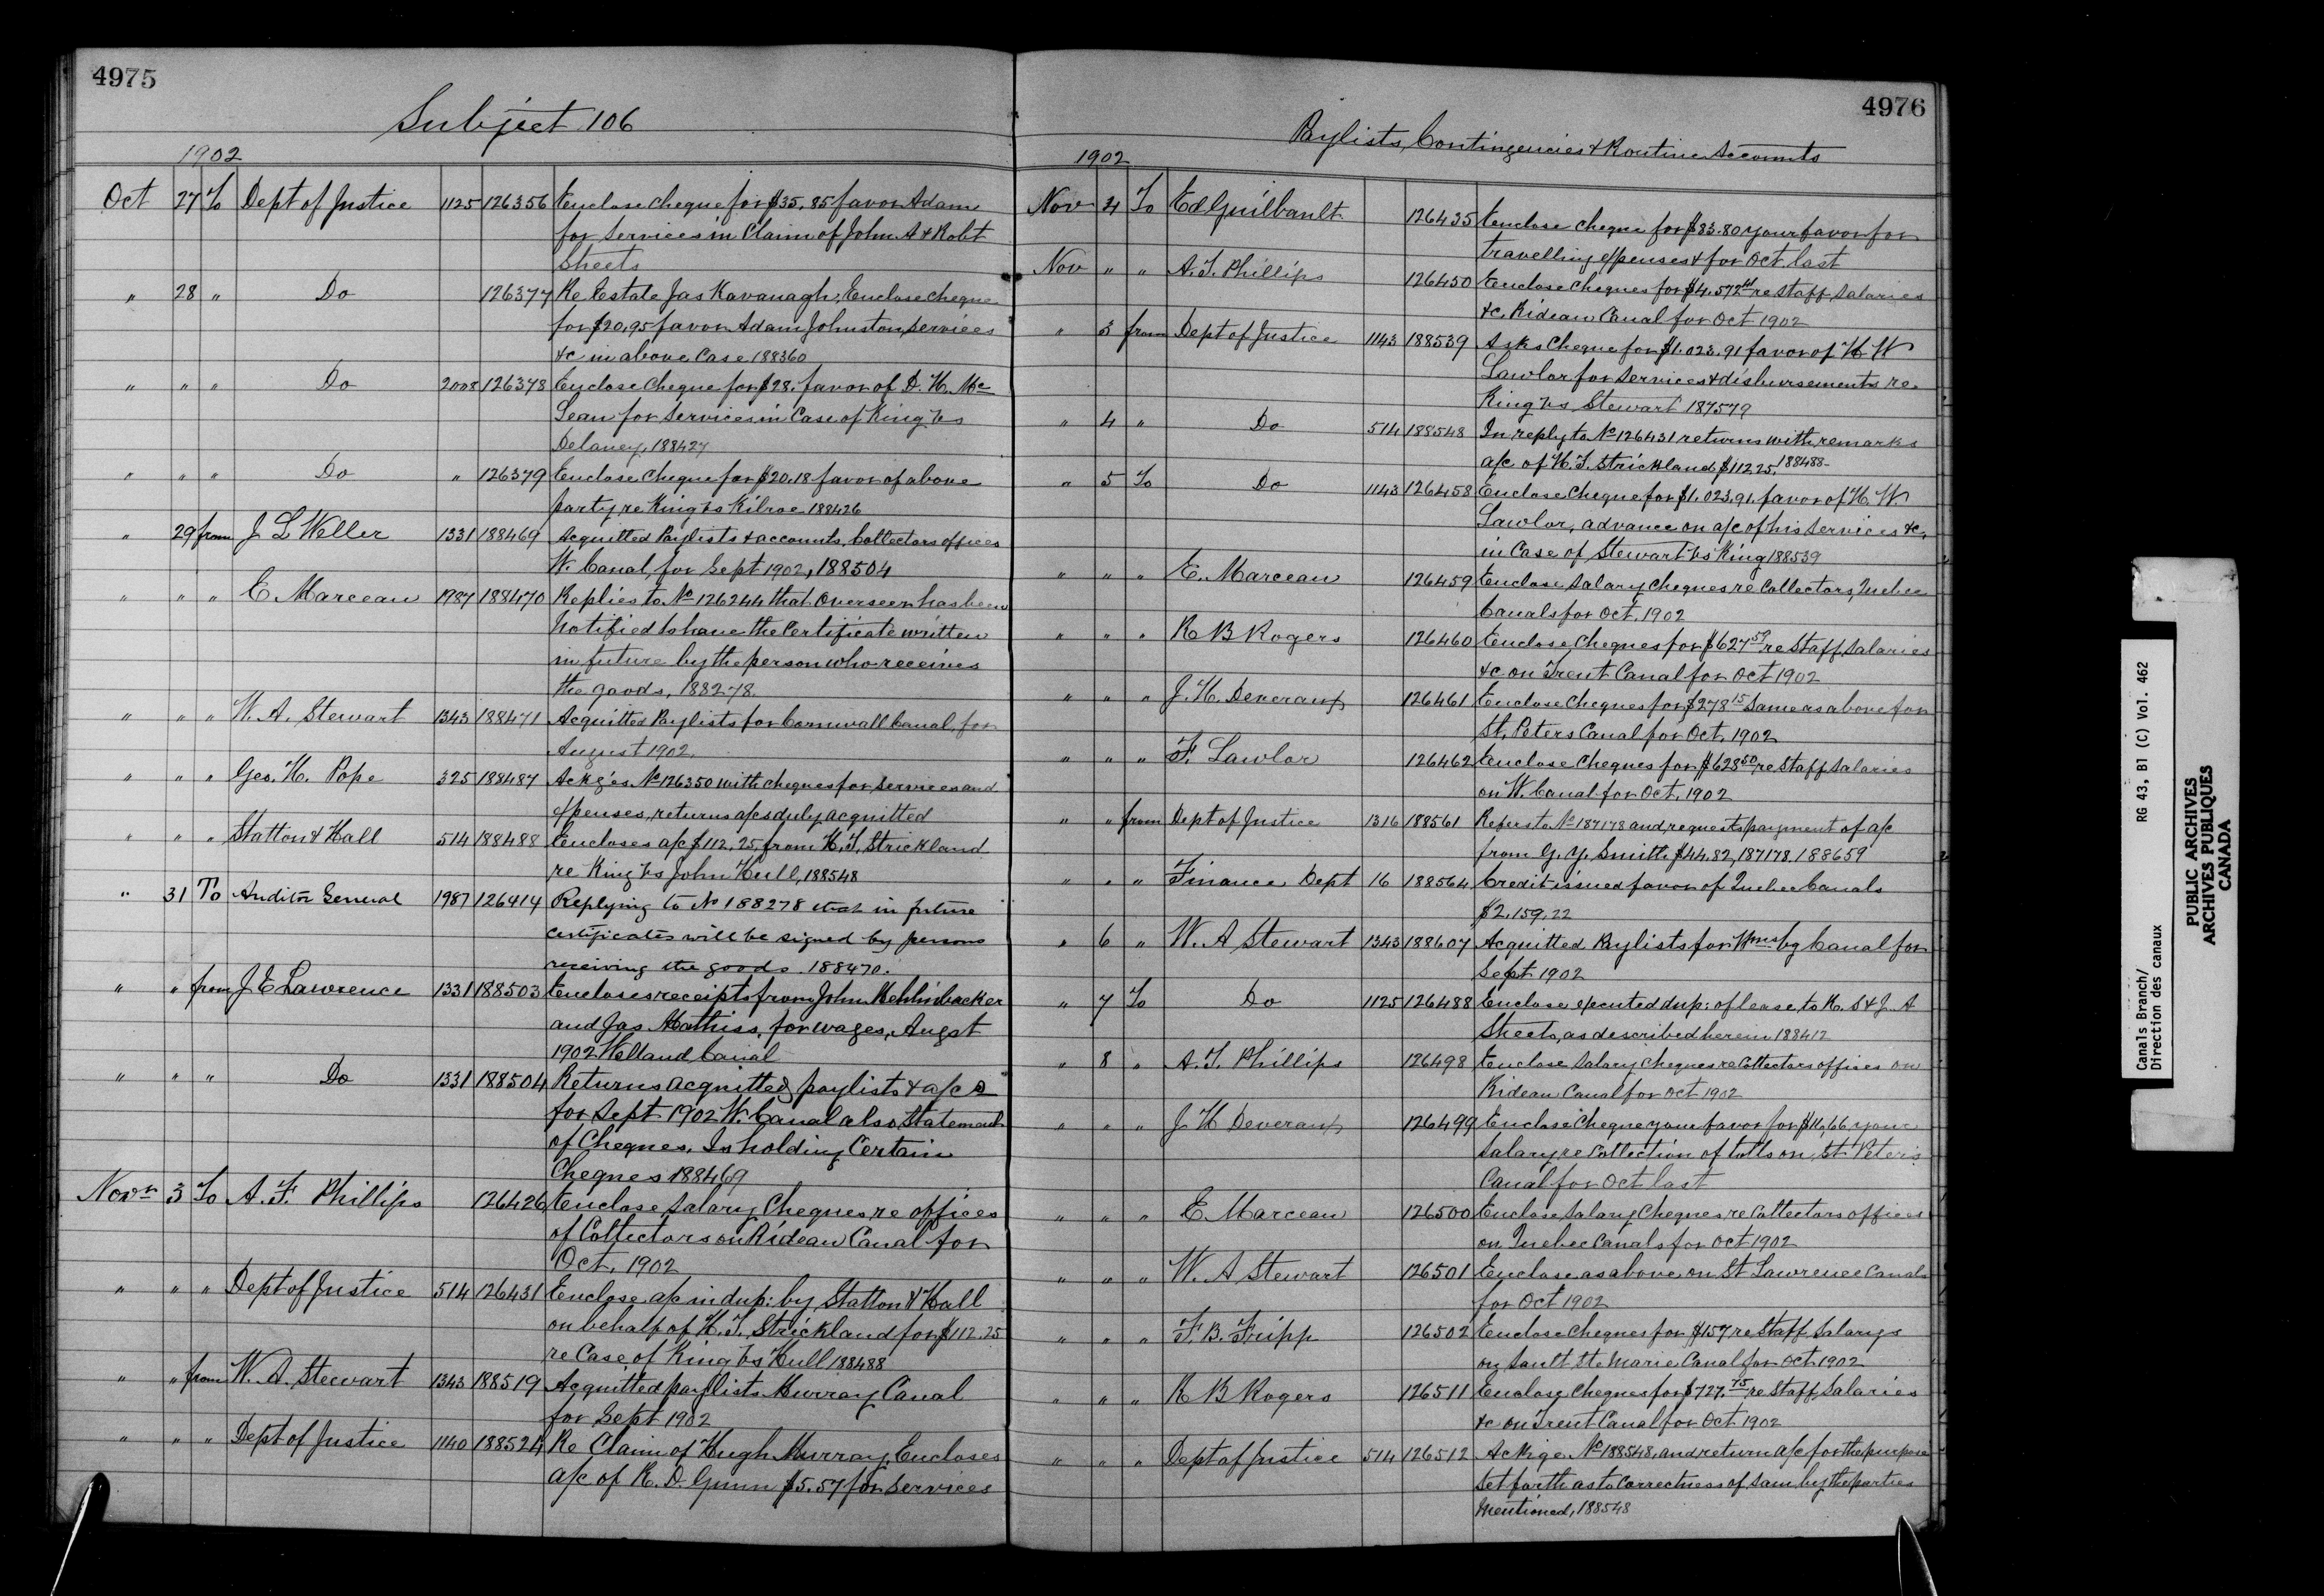 4975
Subject 106
1902
Oct 27 To Dept of Justice 1125 126356 Enclose cheque for $35.85 favor Adam
for services in Claim of John A & Robt
Sheets
" 28 " Do 126377 Re Estate Jas Kavanagh, Enclose cheque
for $20.95 favor Adam Johnston, services
&c in above Case 188360
" " " Do 2008 126378 Enclose cheque for $28. favor of D. H. Mc
Lean for Services in Case of King vs
Delaney, 188427
" " " Do " 126379 Enclose cheque for $20.18 favor of above
party, re King vs Kilroe 188426
" 29 from J L Weller 1331 188469 Acquitted Paylists & accounts, Collectors offices
W. Canal, for Sept 1902, 188504
" " " E Marceau 1987 188470 Replies to No 126244 that Overseer has been
Notified to have the Certificate written
in future by the person who receives
the goods, 188278.
" " " W. A. Stewart 1343 188471 Acquitted Paylists for Cornwall Canal, for
August 1902.
" " " Geo. H. Pope 325 188487 Ackg'es No 126350 with cheques for services and
expenses, returns a/cs duly acquitted
" " " Statton & Hall 514 188488 Encloses a/c $112.25, from H. T. Strickland
re King vs John Hull, 188548
" 31 To Auditor General 1987 126414 Replying to No 188278 that in future
certificates will be signed by persons
receiving the goods. 188470.
" " from J E Lawrence 1331 188503 Encloses receipts from John
and Jas Mathiss, for wages, Augst
1902 Welland Canal
" " " Do 1331 188504 Returns acquitted paylists & a/cs
for Sept 1902 W. Canal also Statement
of Cheques. Is holding Certain
Cheques 188469
Novr 3 To A. T. Phillips 126426 Enclose Salary Cheques, re offices
of Collectors on Rideau Canal for
Oct. 1902
" " " Dept of Justice 514 126431 Enclose a/c in dup: by Statton & Hall
on behalf of H. T. Strickland for $112.25
re Case of King vs Hull 188488
" " from W. A. Stewart 1343 188519 Acquitted paylists Murray Canal
for Sept 1902
" " " Dept of Justice 1140 188524 Re Claim of Hugh Murray, Encloses
a/c of R. D. Gunn $5.57 for services
4976
Paylists, Contingencies & Routine Accounts
1902
Nov 4 To Ed Guilbault 126435 Enclose cheque for $83.80 your favor for
travelling expenses & for Oct. last
Nov " " A. T. Phillips 126450 Enclose cheques for $4,572 re Staff Salaries
&c. Rideau Canal for Oct 1902
" 3 from Dept of Justice 1143 188539 Asks Cheque for $1.023.91 favor of H W
Lawlor for services & disbursements re.
King vs Stewart 187579
" 4 " Do 514 188548 In reply to No 126431 returns with remarks
a/c of H. T. Strickland $112 25, 188488
" 5 To Do 1143 126458 Enclose Cheque for $1.023.91. favor of H. W.
Lawlor, advance on a/c of his services &c,
in Case of Stewart vs King 188539
" " " E. Marceau 126459 Enclose Salary Cheques re Collectors, Quebec
Canals for Oct. 1902
" " " R B Rogers 126460 Enclose Cheques for $627 59 re Staff, Salaries
&c on Trent Canal for Oct 1902
" " " J. H. Deveraux 126461 Enclose Cheques for $278 15 Same as above for
St. Peters Canal for Oct. 1902
" " " F. Lawlor 126462 Enclose Cheques for $628 50 re Staff Salaries
on W. Canal for Oct. 1902
" " from Dept of Justice 1316 188561 Refers to No 187178 and requests payment of a/c
from G. Y. Smith $44.82, 187178. 188659
" " " Finance Dept 16 188564 Credit issued favor of Quebec Canals
$2,159.22
" 6 " W. A Stewart 1343 188607 Acquitted Paylists for Wmsbg Canal for
Sept 1902
" 7 To Do 1125 126488 Enclose executed dup: of lease to R. S & J. A
Sheets, as described herein 188412
" 8 " A. T. Phillips 126498 Enclose Salary Cheques re Collectors offices on
Rideau Canal for Oct 1902
" " " J H Deveraux 126499 Enclose Cheque your favor for $16,66, your
salary re Collection of tolls on St Peters
Canal for Oct last
" " " E Marceau 126500 Enclose Salary Cheques re Collectors offices
on Quebec Canals for Oct 1902
" " " W. A Stewart 126501 Enclose as above on St Lawrence Canals
for Oct 1902
" " " F. B. Fripp 126502 Enclose Cheques for $157 re Staff Salarys
on Sault Ste Marie Canal for Oct. 1902
" " " R B Rogers 126511 Enclose Cheques for $727.75 re Staff Salaries
&c on Trent Canal for Oct 1902
" " " Dept of Justice 514 126512 Ackge. No 188548, and return a/c for the purpose
Set forth as to Correctness of Same by the parties
Mentioned, 188548
Canals Branch/
Direction des canaux
RG 43, B1 (C) Vol. 462
PUBLIC ARCHIVES
ARCHIVES PUBLIQUES
CANADA